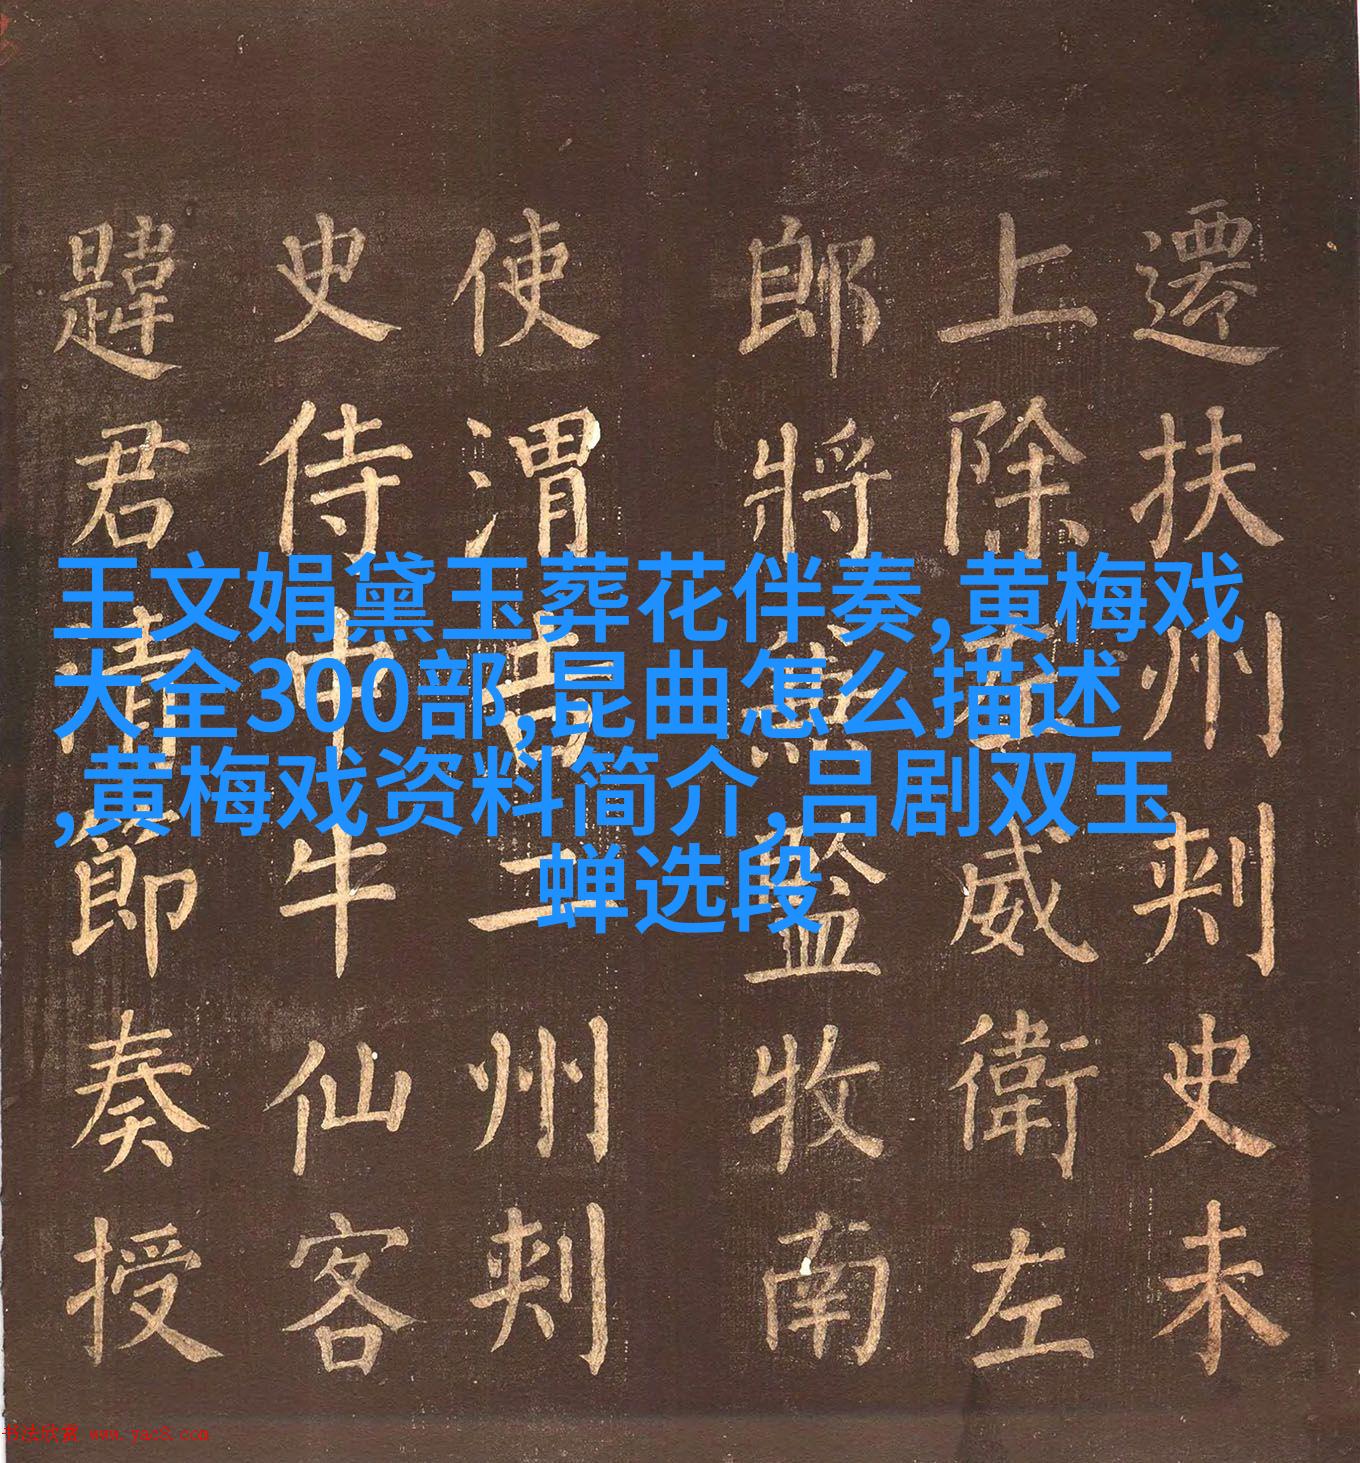 遷扶州刺史未
上除威衛左
郎將監牧南
使渭吉二州刺
史侍中牛仙客
韙君清節奏授
王文娟黛玉葬花伴奏,黄梅戏
大全300部,昆曲怎么描述
,黄梅戏资料简介,吕剧双玉
蝉选段
书法欣赏 www.yac8.com